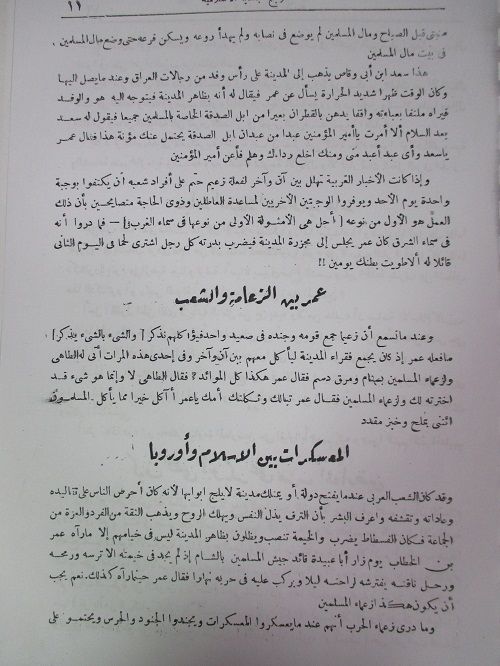 ١١
منتى قبل الصباح ومال المسلمين لم يوضع فى نصابه ولم يهدأ روعه ويسكن فزعه حتى وضع مال المسلمين
فى بيت مال المسلمين
هذا سعد ابن أبى وقاص يذهب إلى المدينة على رأس وفد من رجالات العراق وعند ما يصل اليها
وكان الوقت ظهرا شديد الحرارة يسأل عن عمر فيقال له أنه بظاهر المدينة فيتوجه اليه هو والوفد
فيراه ملتفا بعباءته واقفا يدهن بالقطران بعيرا من ابل الصدقة الخاصة بالمسلمين جميعا فيقول له سعد
بعد السلام ألا أمرت يا أمير المؤمنين عبدا من عبدان ابل الصدقة يحتمل عنك مؤنة هذا فقال عمر
ياسعد وأى عبد أعبد منى ومنك اخلع رداءك وهلم فأعن أمير المؤمنين
وإذا كانت الأخبار الغربية تهلل بين آن وآخر لفعلة زعيم حتم على أفراد شعبه أن يكتفوا بوجبة
واحدة يوم الأحد ويوفروا الوجبتين الأخريين لمساعدة العاطلين وذوى الحاجة متصايحين بأن ذلك
العمل هو الأول من نوعه [ أجل هى الأمثولة الأولى من نوعها فى سماء الغرب ] — فما دروا أنه
فى سماء الشرق كان عمر يجلس إلى مجزرة المدينة فيضرب بدرته كل رجل اشترى لحما فى اليوم الثانى
قائلا له ألا طويت بطنك يومين !!
عمر بين الزعامة والشعب
وعند ما تسمع أن زعيما جمع قومه وجنده فى صعيد واحد فيؤاكلهم تذكر [ والشىء بالشىء يذكر ]
ما فعله عمر إذ كان يجمع فقراء المدينة ليأكل معهم بين آن وآخر وفى إحدى هذه المرات أتى له الطاهى
ولزعماء المسلمين بسنام ومرق دسم فقال عمر هكذا كل الموائد ؟ فقال الطاهى لا وإنما هو شىء قد
اخترته لك ولزعماء المسلمين فقال عمر تبا لك وثكلتك أمك يا عمر أآكل خيرا مما يأكل المسلمون
ائتنى بملح وخبز مقدد
المعسكرات بين الاسلام وأوروبا
وقد كان الشعب العربى عندما يفتح دولة أو يمتلك مدينة لا يلج ابوابها لأنه كان أحرض الناس على تقاليده
وعاداته وتقشفه واعرف البشر بأن الترف يذل النفس ويهلك الروح ويذهب الثقة من الفرد والعزة من
الجماعة فكان الفسطاط يضرب والخيمة تنصب ويظلون بظاهر المدينة ليس فى خيامهم إلا ما رآه عمر
بن الخطاب يوم زار أبا عبيدة قائد جيش المسلمين بالشام إذ لم يجد فى خيمته الا ترسه ورمحه
ورحل ناقته يفترشه لراحته ليلا ويركب عليه فى حربه نهارا فقال عمر حينما رآه كذلك. نعم يجب
أن يكون هكذا زعماء المسلمين
وما درى زعماء الحرب أنهم عند ما يعسكروا المعسكرات ويجندوا الجنود والحرس ويحتموا على